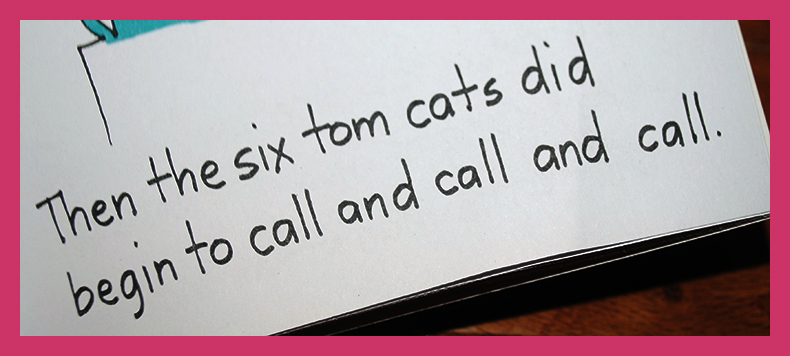 Then the six tom cats did
begin to call and call and call.